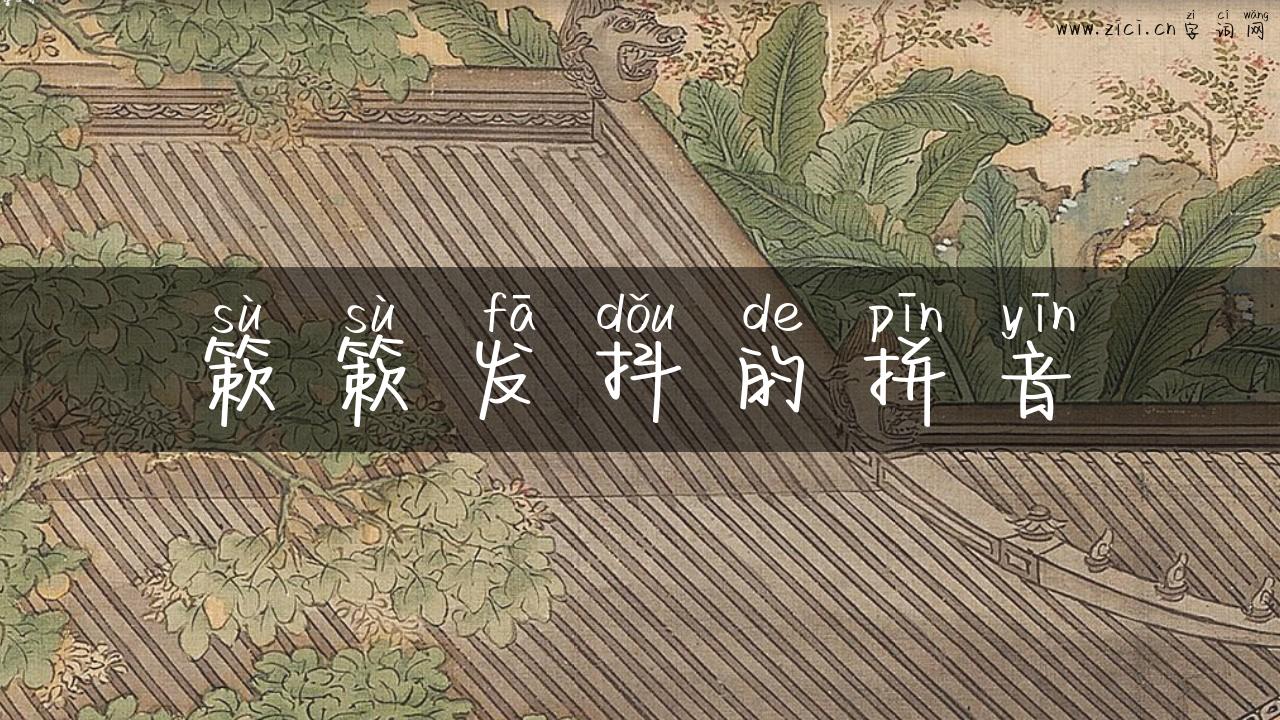 zì cí wǎng
www.zici.cn 字词网
sù sù fā dǒu de pīn yīn
簌簌发抖的拼音